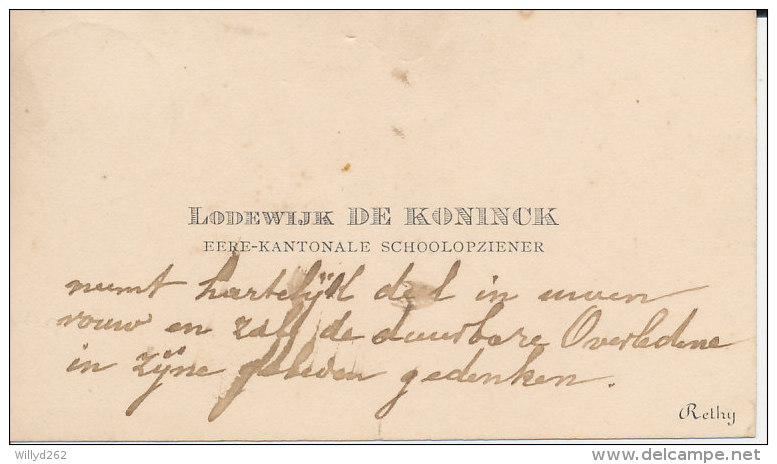 LODEWIJK DE KONINCK
EERE-KANTONALE SCHOOLOPZIENER
neemt hartelijk deel in uwen
rouw en zal de duurbare Overledene
in zijne gebeden gedenken.
Rethy
Willyd262
delcampe.net